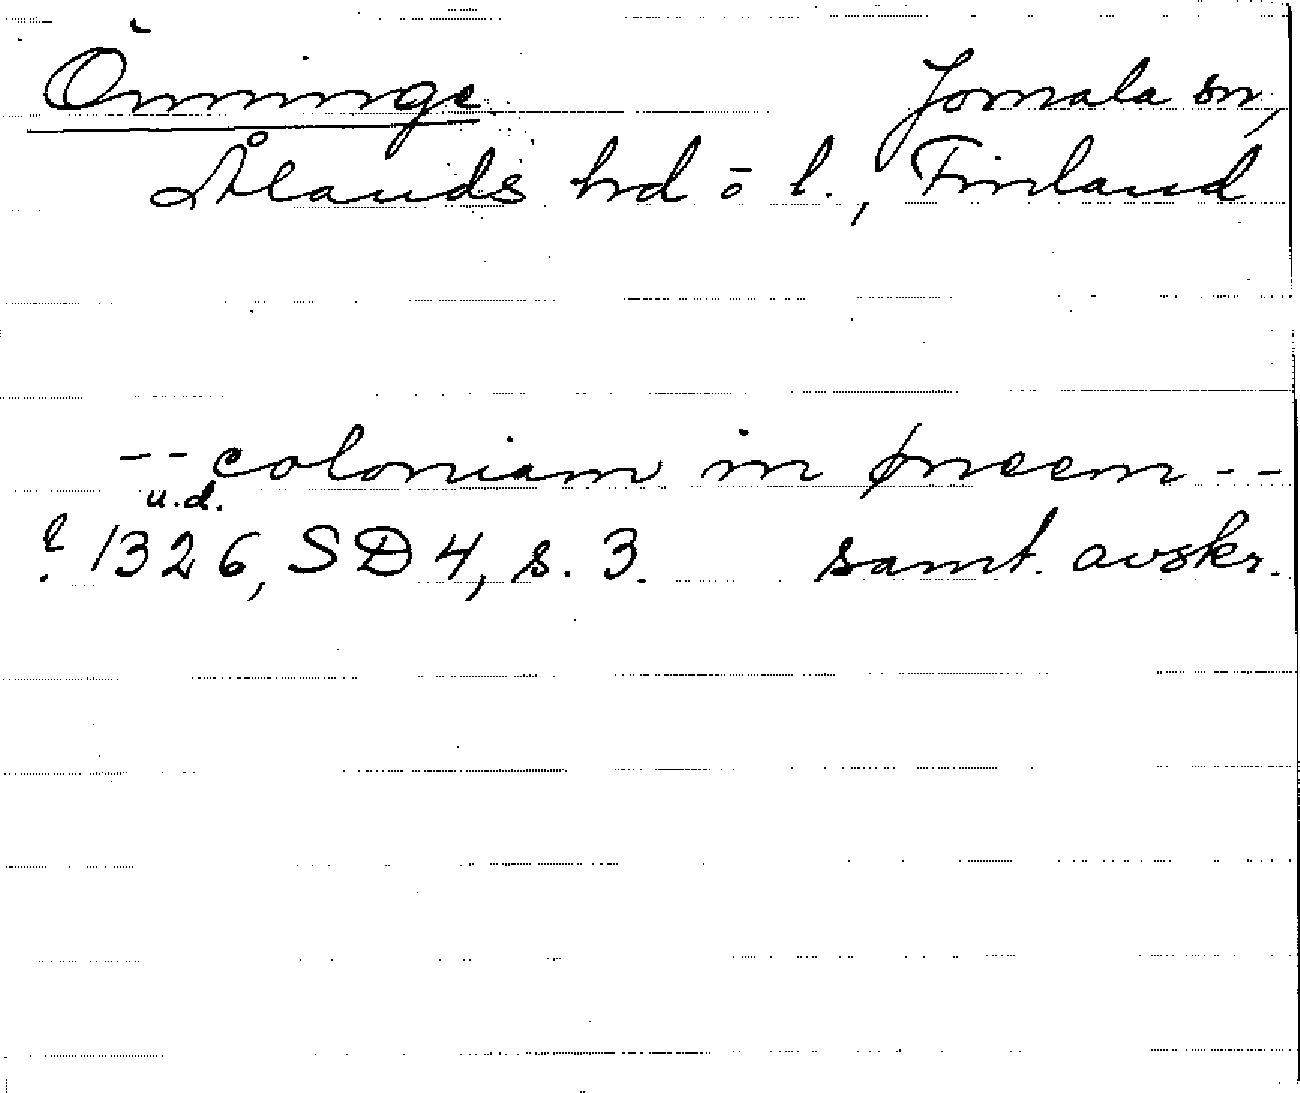 Önninge Jomala sn,
Ålands hrd o l., Finland
-- coloniam in øneem --
u.d.
? 1326, SD 4, s. 3. samt. avskr.